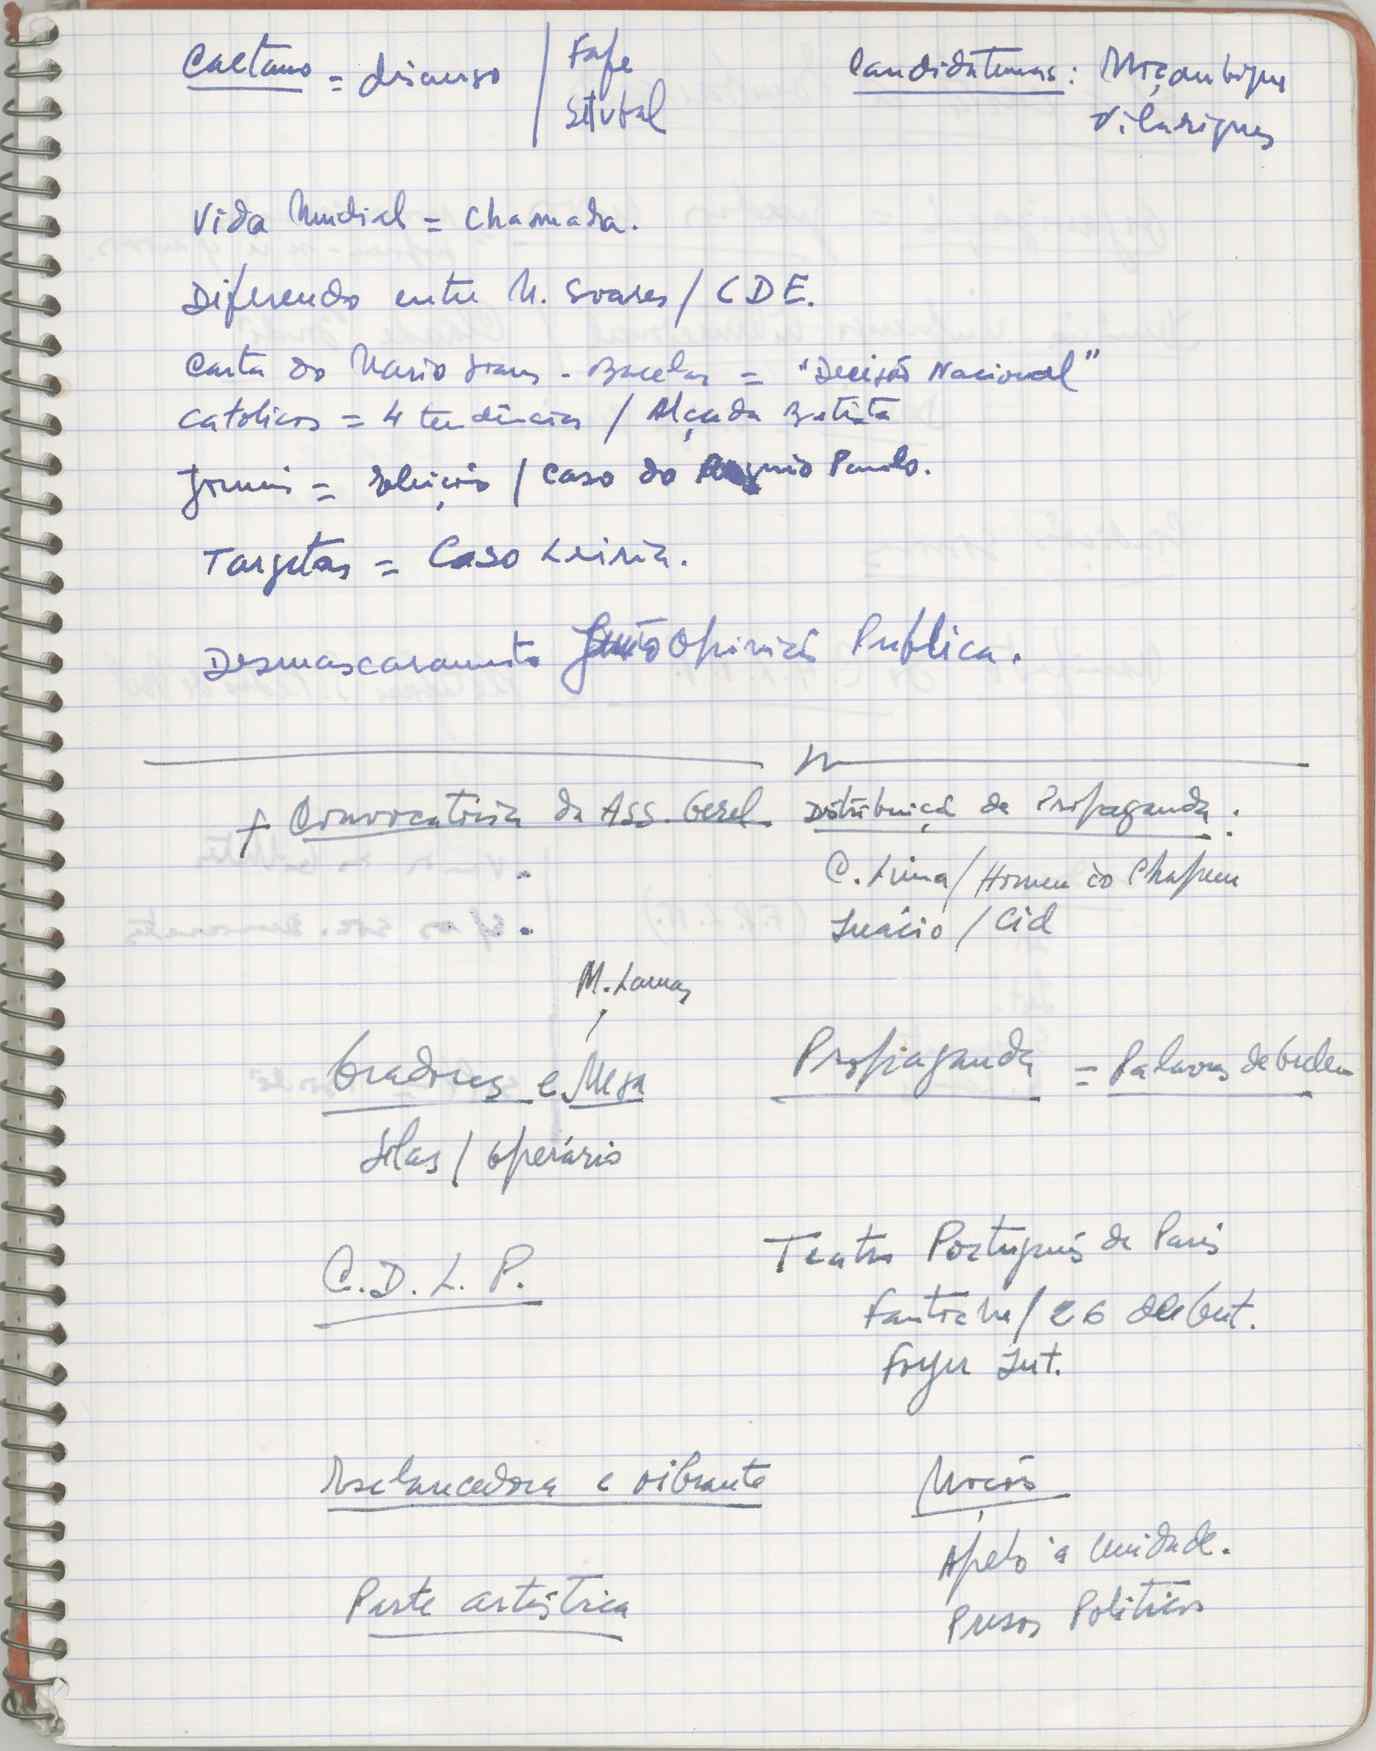 Caetano = discurso / Fafe
Setubal
Candidaturas: Moçambique
Vilarigues
Vida Mundial = Chamada.
Diferendo entre M. Soares / CDE.
Carta do Mario Soares - = "Decisão Nacional"
Catolicos = 4 tendências / Alçada Batista
Jornais = / Caso do Paulo.
Targetas = Caso Leiria.
Desmascaramento Junto Opinião Publica.
+ Convocatória da Ass. Geral.
Distribuição da Propaganda:
C. Lima / Homem do Chapeu
Inácio / Cid
M. Lamas
Oradores e Mesa
Silas / Operário
Propaganda = Palavras de Ordem
C.D.L.P.
Teatro Português de Paris
/ 26 de Out.
Foyer Int.
Esclarecedora e vibrante
Parte artistica
Moção
Apelo à Unidade.
Presos Politicos